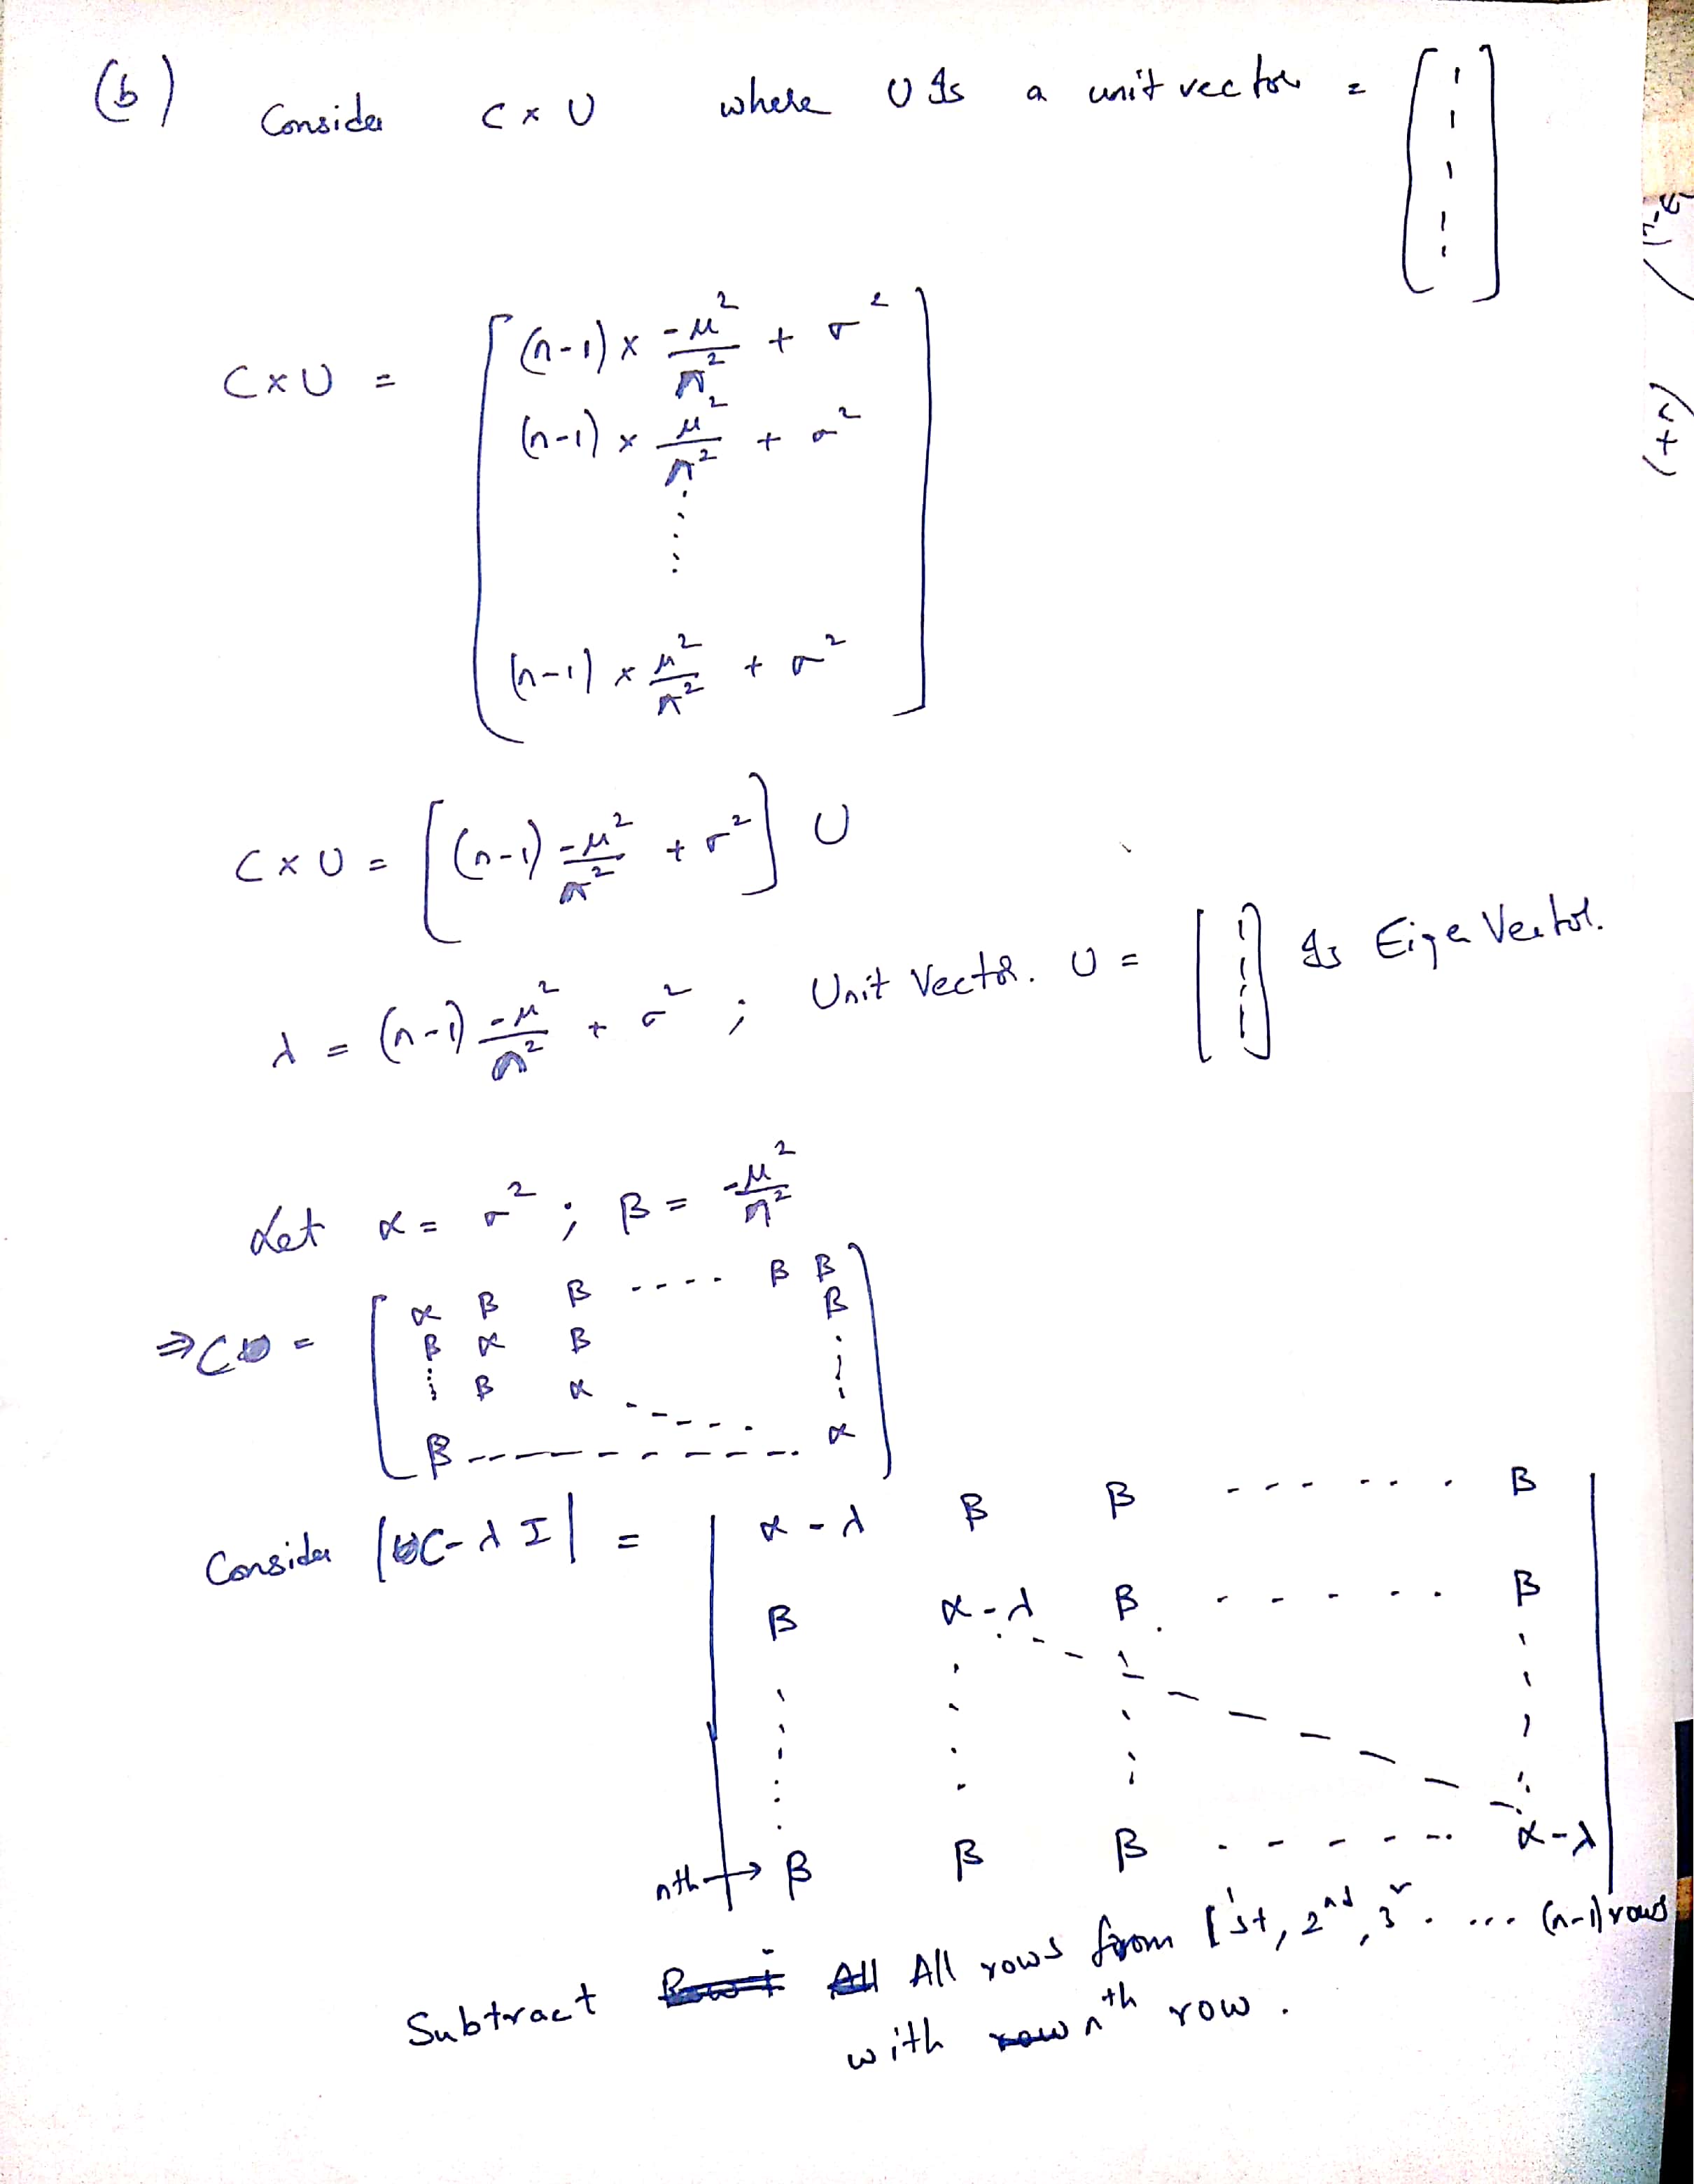 (b) Consider C × U where U Is a unit vector = [1 1 1 1 1]
C × U = [ (n-1) × -μ²/n² + σ²
(n-1) × μ²/n² + σ²
⋮
(n-1) × μ²/n² + σ² ]
C × U = [(n-1) -μ²/n² + σ²] U
λ = (n-1) -μ²/n² + σ² ; Unit Vector. U = [1 1 1 1] Is Eige Vector.
Let α = σ² ; β = -μ²/n²
⇒ C = [ α β β ---- β β
β α β β
⋮ β α ----. ⋮
β ---------. α ]
Consider |C - λI| = | α-λ β β ------ β
β α-λ β ------ β
⋮ ⋮ ⋮ ⋮
nth → β β β ------ α-λ |
Subtract All rows from 1'st, 2nd, 3r. ... (n-1) rows
with nth row.